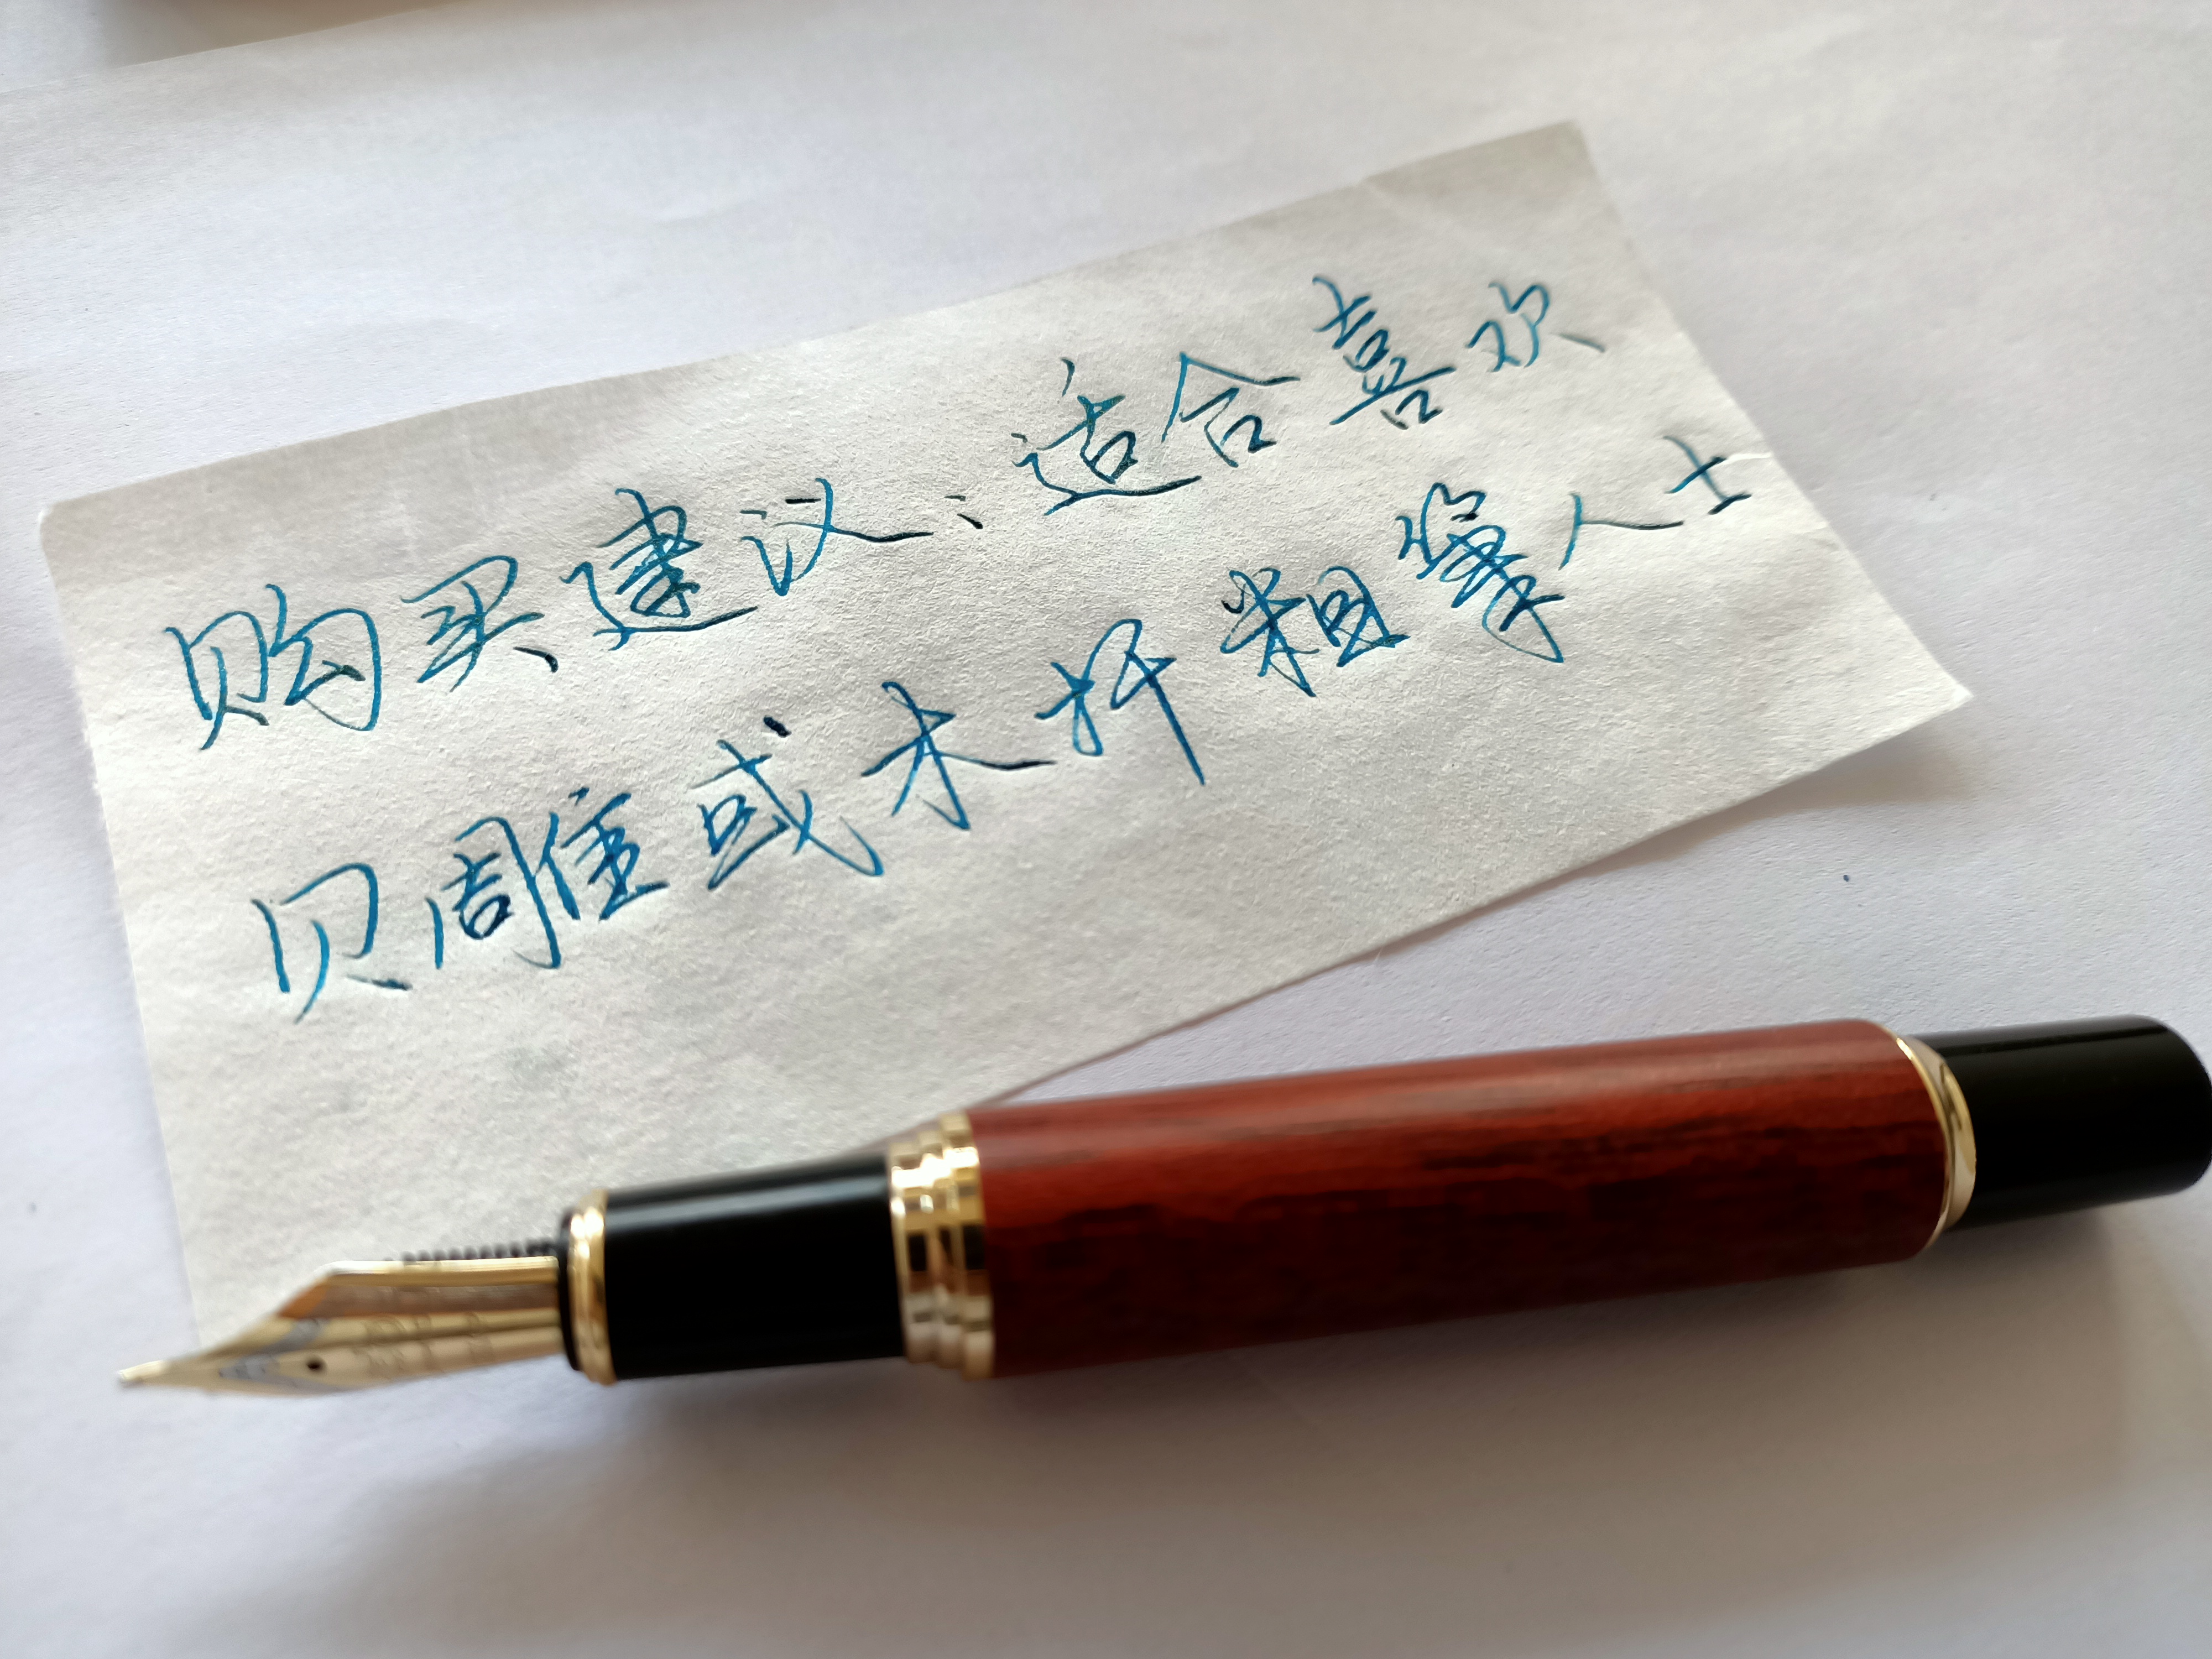 购买建议：适合喜欢
贝雕或木杆粗笔人士